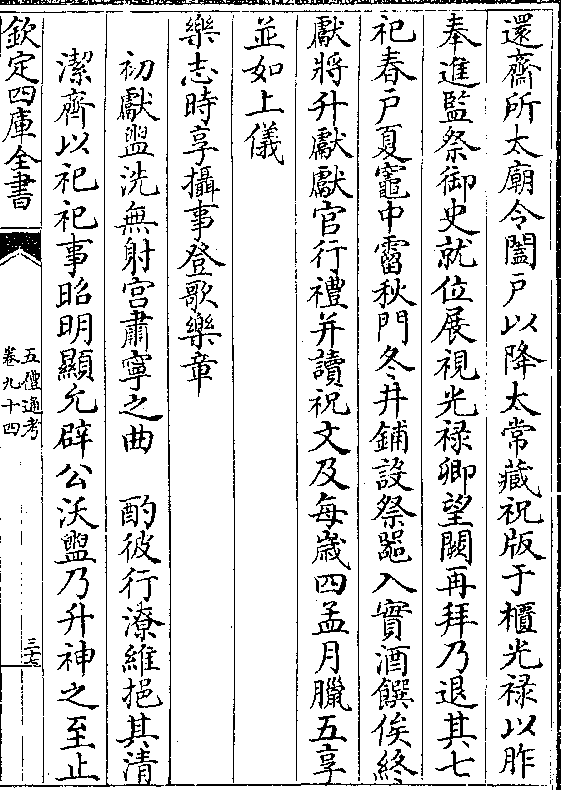 還齋所太廟令闔戶以降太常藏祝版于櫃光禄以胙
奉進監祭御史就位展視光禄卿望闕再拜乃退其七
祀春戶夏竈中霤秋門冬井鋪設祭器入實酒饌俟終
獻將升獻獻官行禮并讀祝文及每歲四孟月臘五享
並如上儀
樂志時享攝事登歌樂章
初獻盥洗無射宮肅寧之曲　酌彼行潦維挹其清
潔齊以祀祀事昭明顯允辟公沃盥乃升神之至止
欽定四庫全書
五禮通考
卷九十四
三十七